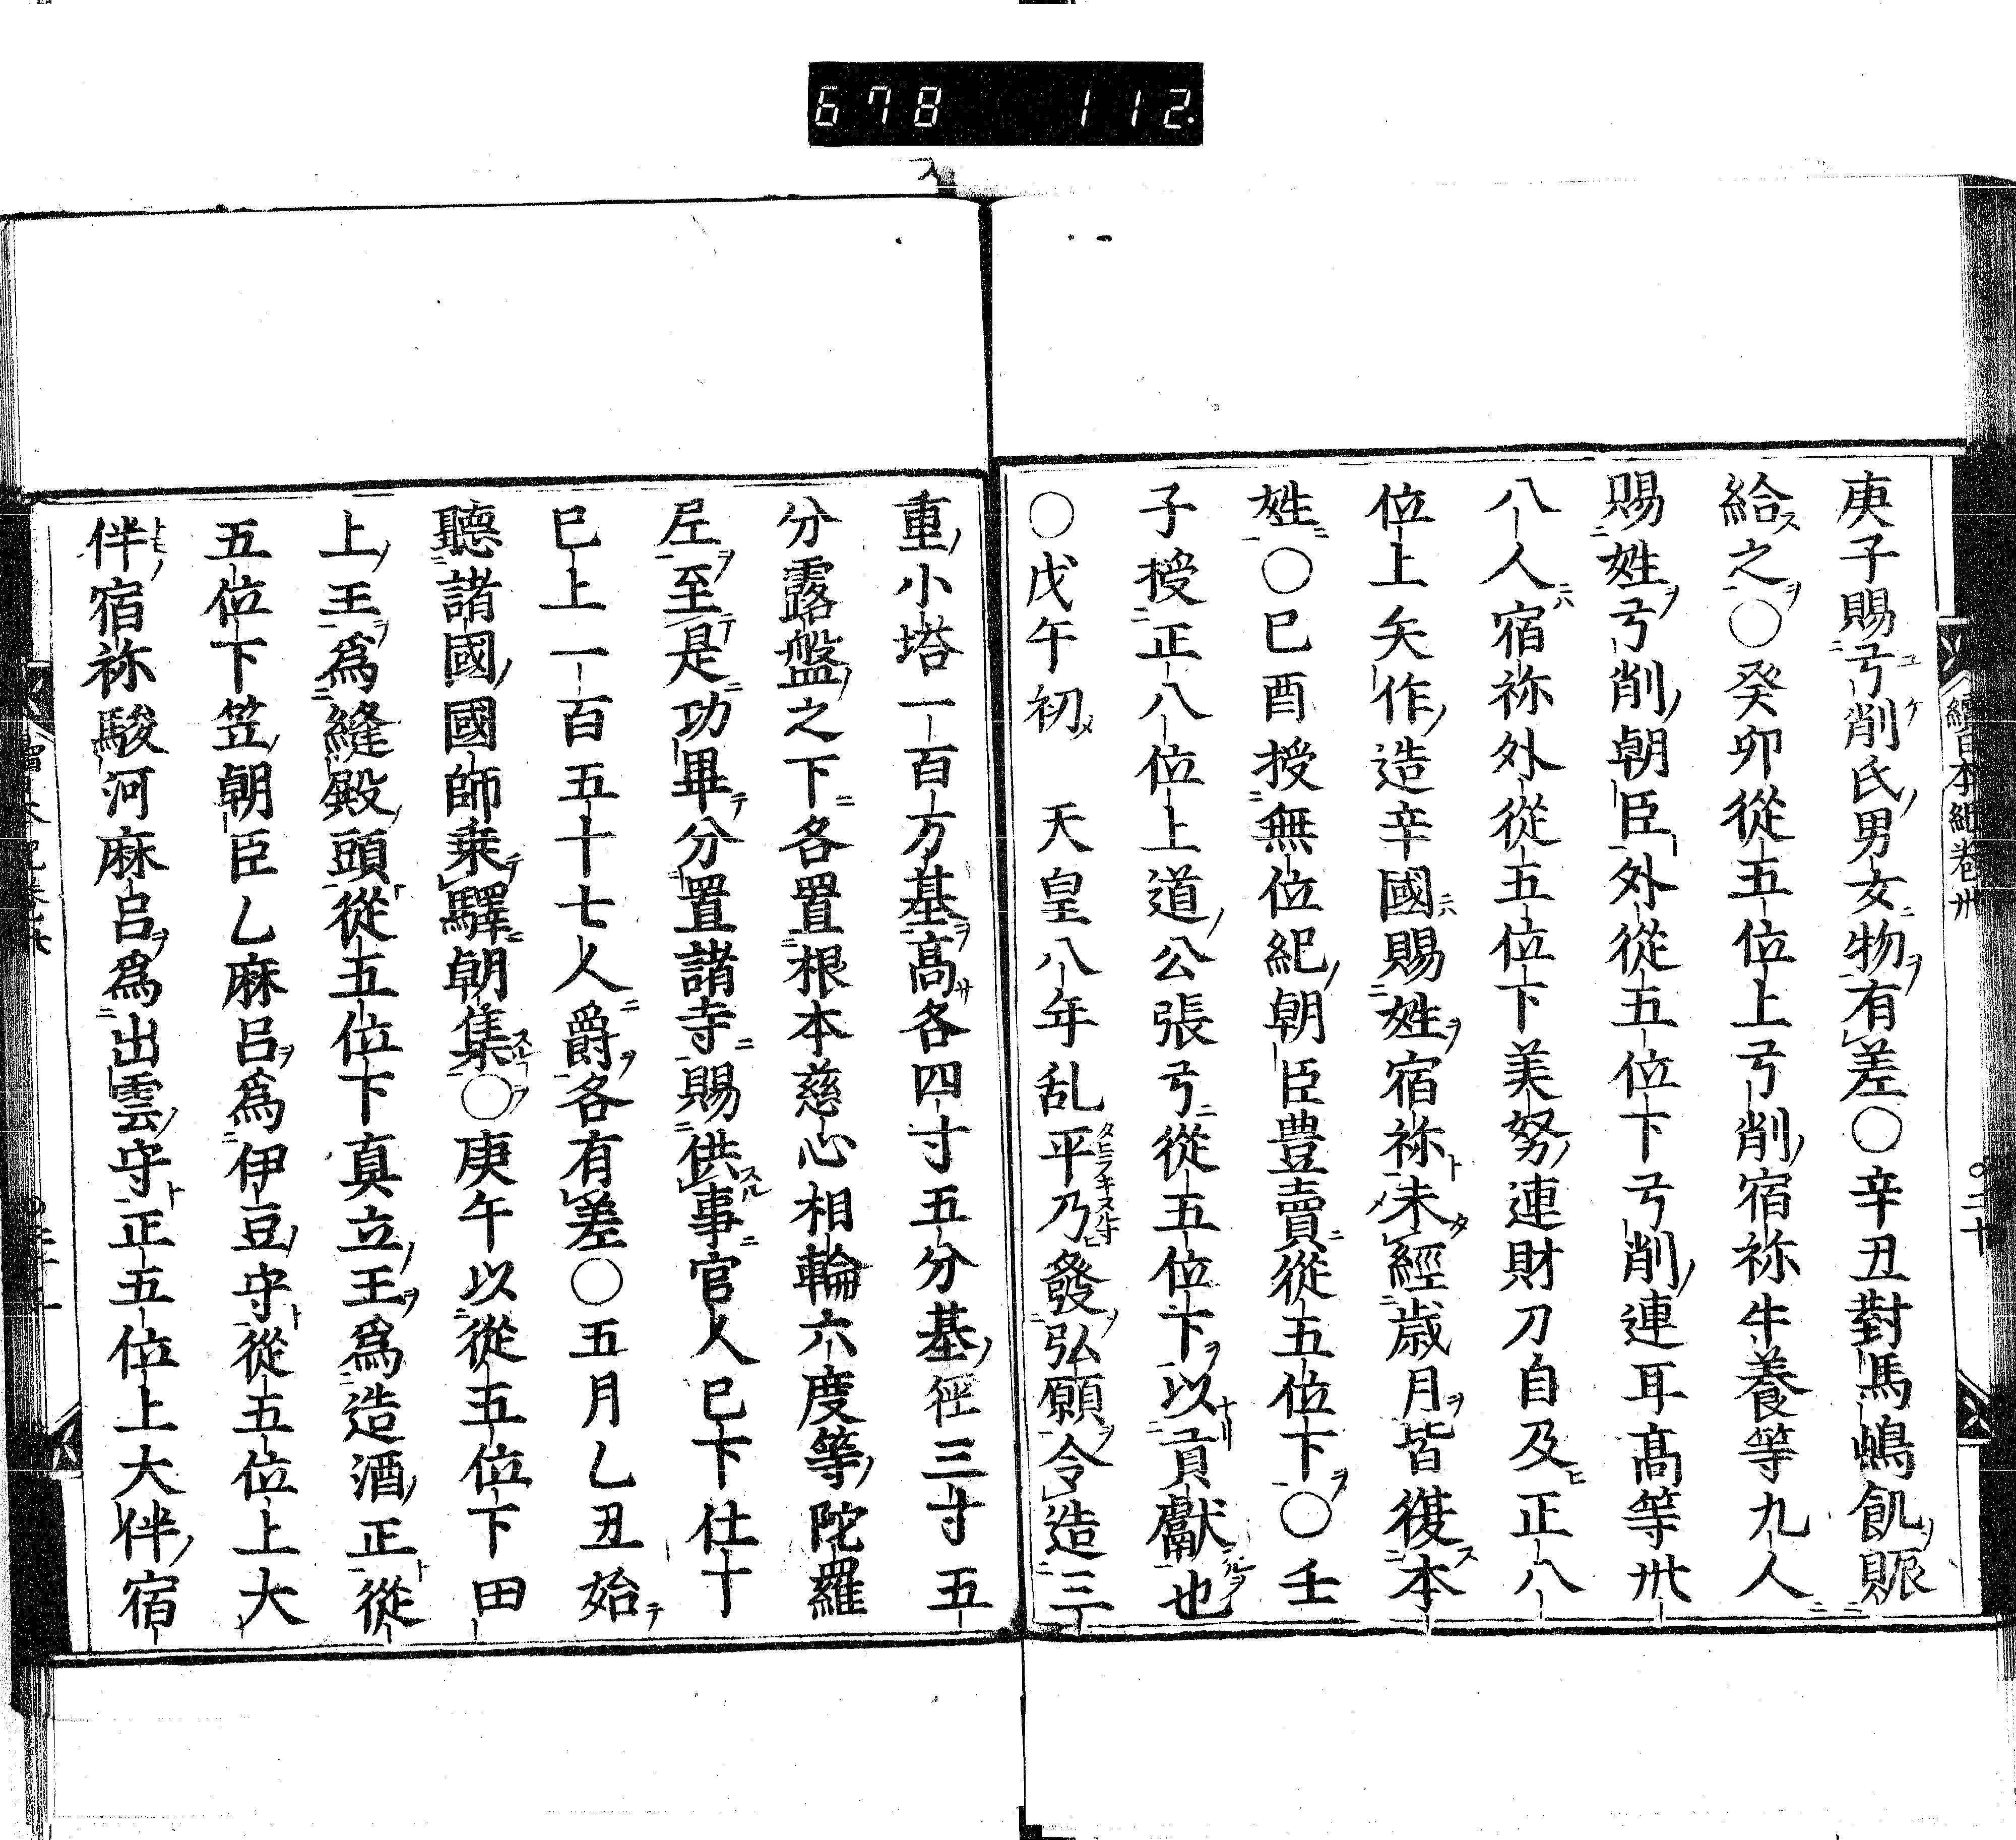 678 112.
續日本紀卷卅
○二十
庚子賜弓削氏男女物有差○辛丑對馬嶋飢賑
給之○癸卯從五位上弓削宿祢牛養等九人
賜姓弓削朝臣外從五位下弓削連耳高等卅
八人宿祢外從五位下美努連財刀自及正八
位上矢作造辛國賜姓宿祢未經歳月皆復本
姓○巳酉授無位紀朝臣豊賣從五位下○壬
子授正八位上道公張弓從五位下以貢獻也
○戊午初　天皇八年乱平乃發弘願令造三
重小塔一百万基高各四寸五分基徑三寸五
分露盤之下各置根本慈心相輪六度等陀羅
尼至是功畢分置諸寺賜供事官人巳下仕丁
巳上一百五十七人爵各有差○五月乙丑始
聽諸國國師乗驛朝集○庚午以從五位下田
上王爲縫殿頭從五位下真立王爲造酒正從
五位下笠朝臣乙麻呂爲伊豆守從五位上大
伴宿祢駿河麻呂爲出雲守正五位上大伴宿